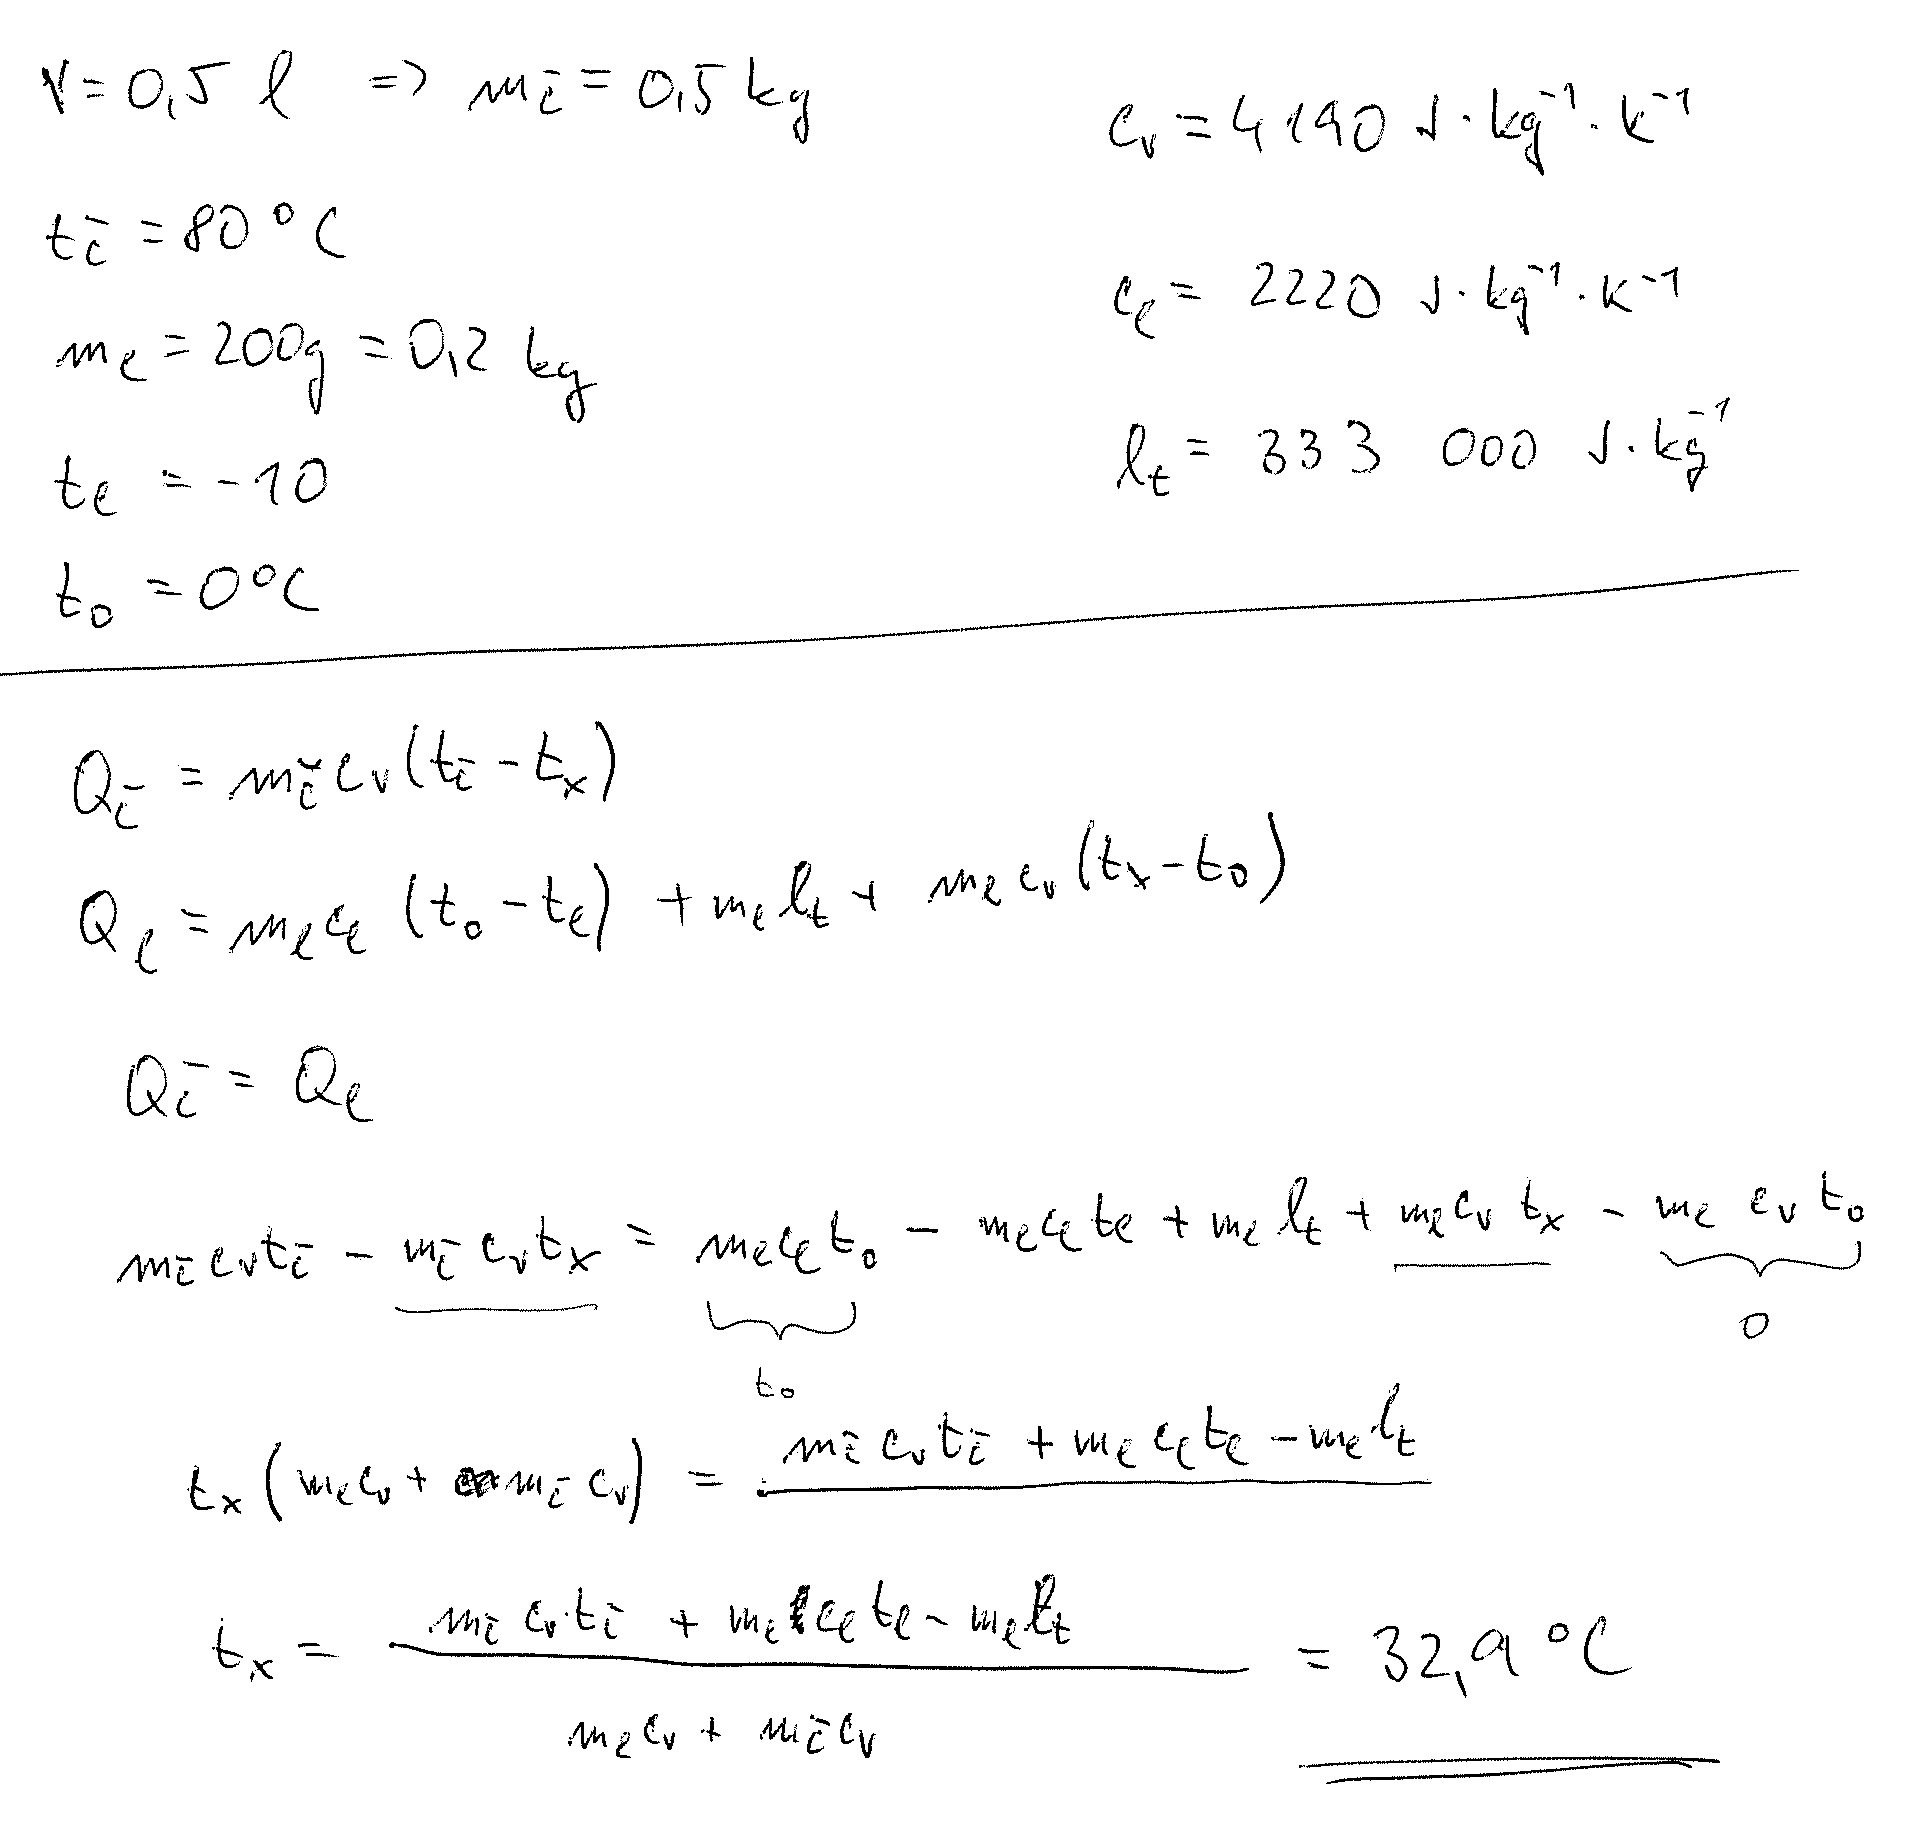 V = 0,5 l => m_č = 0,5 kg
c_v = 4190 J·kg⁻¹·K⁻¹
t_č = 80 °C
c_l = 2220 J·kg⁻¹·K⁻¹
m_l = 200g = 0,2 kg
l_t = 333 000 J·kg⁻¹
t_l = -10
t_0 = 0°C
Q_č = m_č c_v (t_č - t_x)
Q_l = m_l c_l (t_0 - t_l) + m_l l_t + m_l c_v (t_x - t_0)
Q_č = Q_l
m_č c_v t_č - m_č c_v t_x = m_l c_l t_0 - m_l c_l t_l + m_l l_t + m_l c_v t_x - m_l c_v t_0
0
t_0
t_x (m_l c_v + m_č c_v) = m_č c_v t_č + m_l c_l t_l - m_l l_t
t_x = (m_č c_v t_č + m_l c_l t_l - m_l l_t) / (m_l c_v + m_č c_v) = 32,9 °C